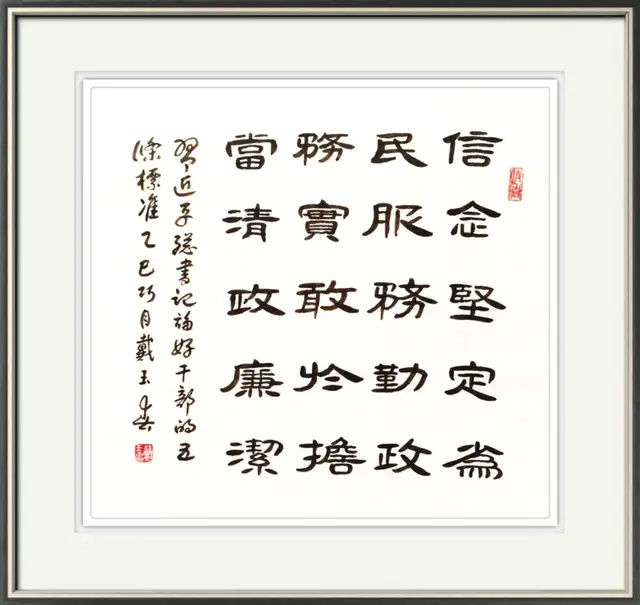 信念堅定為
民服務勤政
務實敢於擔
當清政廉潔
習近平總書記論好干部的五
條標准乙巳巧月戴玉